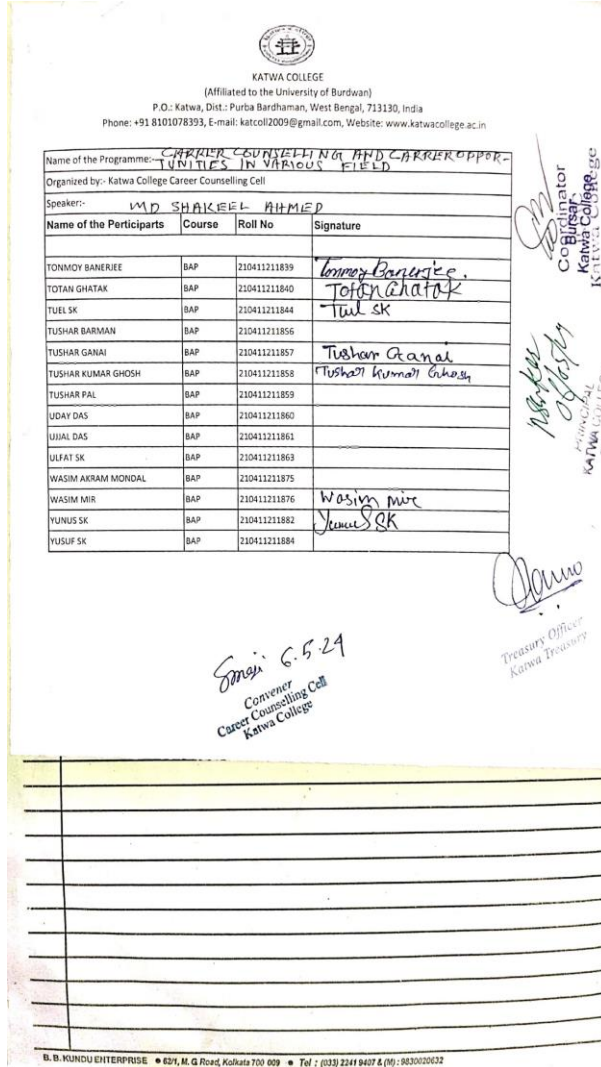 KATWA COLLEGE
(Affiliated to the University of Burdwan)
P.O.: Katwa, Dist.: Purba Bardhaman, West Bengal, 713130, India
Phone: +91 8101078393, E-mail: katcoll2009@gmail.com, Website: www.katwacollege.ac.in
Name of the Programme:- CARRER COUNSELLING AND CARREROPPOR-
TUNITIES IN VARIOUS FIELD
Organized by:- Katwa College Career Counselling Cell
Speaker:- MD SHAKEEL AHMED
Name of the Perticiparts Course Roll No Signature
TONMOY BANERJEE BAP 210411211839 Tonmoy Banerjee.
TOTAN GHATAK BAP 210411211840 Totan Ghatak
TUEL SK BAP 210411211844 Tuel SK
TUSHAR BARMAN BAP 210411211856
TUSHAR GANAI BAP 210411211857 Tushar Ganai
TUSHAR KUMAR GHOSH BAP 210411211858 Tushar Kumar Ghosh
TUSHAR PAL BAP 210411211859
UDAY DAS BAP 210411211860
UJJAL DAS BAP 210411211861
ULFAT SK BAP 210411211863
WASIM AKRAM MONDAL BAP 210411211875
WASIM MIR BAP 210411211876 Wasim mir
YUNUS SK BAP 210411211882 Yunus SK
YUSUF SK BAP 210411211884
Coordinator
Bursar
Katwa College
Katwa College
06/05/24
PRINCIPAL
KATWA COLLEGE
Treasury Officer
Katwa Treasury
6.5.24
Convener
Career Counselling Cell
Katwa College
B. B. KUNDU ENTERPRISE ● 62/1, M. G Road, Kolkata 700 009 ● Tel : (033) 2241 9407 & (M) : 9830020632